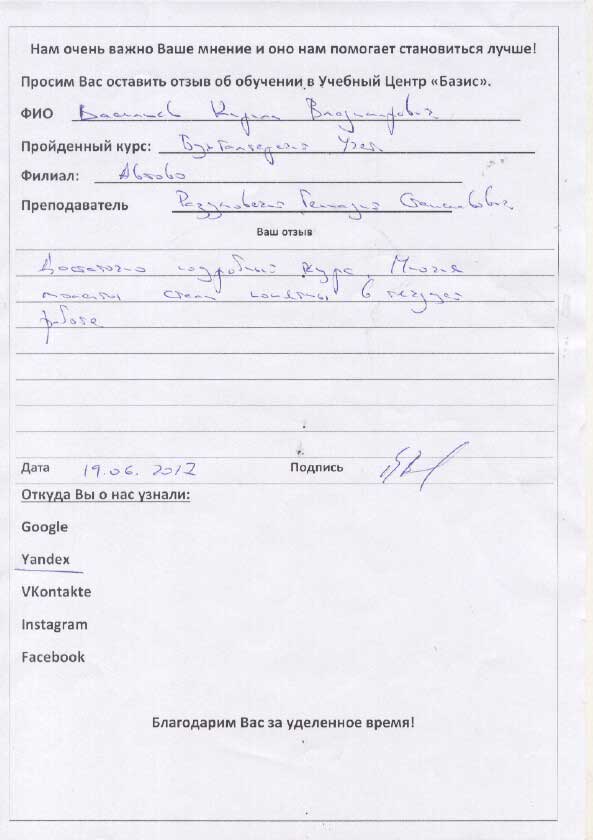 Нам очень важно Ваше мнение и оно нам помогает становиться лучше!
Просим Вас оставить отзыв об обучении в Учебный Центр «Базис».
ФИО Васильев Кирилл Владимирович
Пройденный курс: Бухгалтерский Учет
Филиал: Автово
Преподаватель Геннадий Станиславович
Ваш отзыв
Достаточно подробный курс. Многие
моменты стали понятны в текущей
работе
Дата 19.06.2017 Подпись
Откуда Вы о нас узнали:
Google
Yandex
VKontakte
Instagram
Facebook
Благодарим Вас за уделенное время!